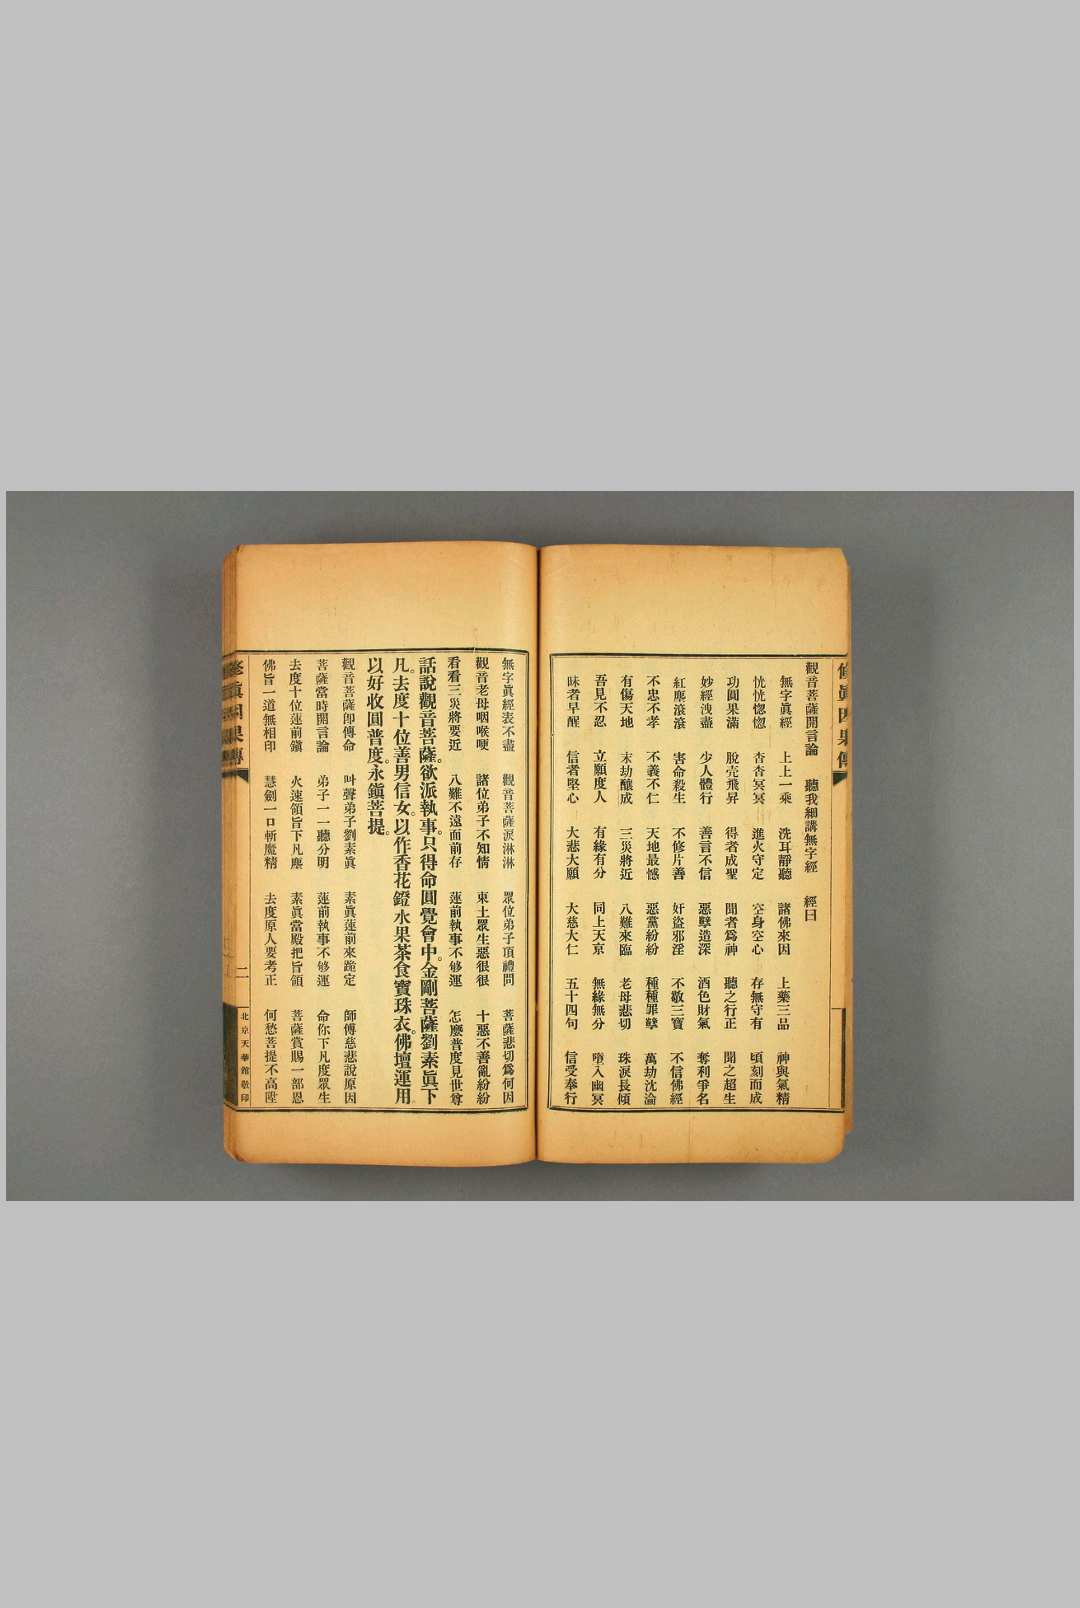 修眞因果傳
觀音菩薩開言論 聽我細講無字經 經曰
無字眞經 上上一乘 洗耳靜聽 諸佛來因 上藥三品 神與氣精
恍恍惚惚 杳杳冥冥 進火守定 空身空心 存無守有 頃刻而成
功圓果滿 脫壳飛昇 得者成聖 聞者爲神 聽之行正 聞之超生
妙經洩盡 少人體行 善言不信 惡孽造深 酒色財氣 奪利爭名
紅塵滾滾 害命殺生 不修片善 奸盜邪淫 不敬三寶 不信佛經
不忠不孝 不義不仁 天地最憾 惡黨紛紛 種種罪孽 萬劫沈淪
有傷天地 末劫釀成 三災將近 八難來臨 老母悲切 珠淚長傾
吾見不忍 立願度人 有緣有分 同上天京 無緣無分 墮入幽冥
昧者早醒 信者堅心 大悲大願 大慈大仁 五十四句 信受奉行
無字眞經表不盡 觀音菩薩淚淋淋 眾位弟子頂禮問 菩薩悲切爲何因
觀音老母咽喉哽 諸位弟子不知情 東土眾生惡很很 十惡不善亂紛紛
看看三災將要近 八難不遠面前存 蓮前執事不够運 怎麼普度見世尊
話說觀音菩薩。欲派執事。只得命圓覺會中。金剛菩薩劉素眞下
凡。去度十位善男信女。以作香花鐙水果茶食寶珠衣。佛壇運用
以好收圓普度。永鎭菩提。
觀音菩薩卽傳命 叫聲弟子劉素眞 素眞蓮前來跪定 師傅慈悲說原因
菩薩當時開言論 弟子一一聽分明 蓮前執事不够運 命你下凡度眾生
去度十位蓮前鎭 火速領旨下凡塵 素眞當殿把旨領 菩薩賞賜一部恩
佛旨一道無相印 慧劍一口斬魔精 去度原人要考正 何愁菩提不高陞
修眞因果傳
二
北京天華館敬印